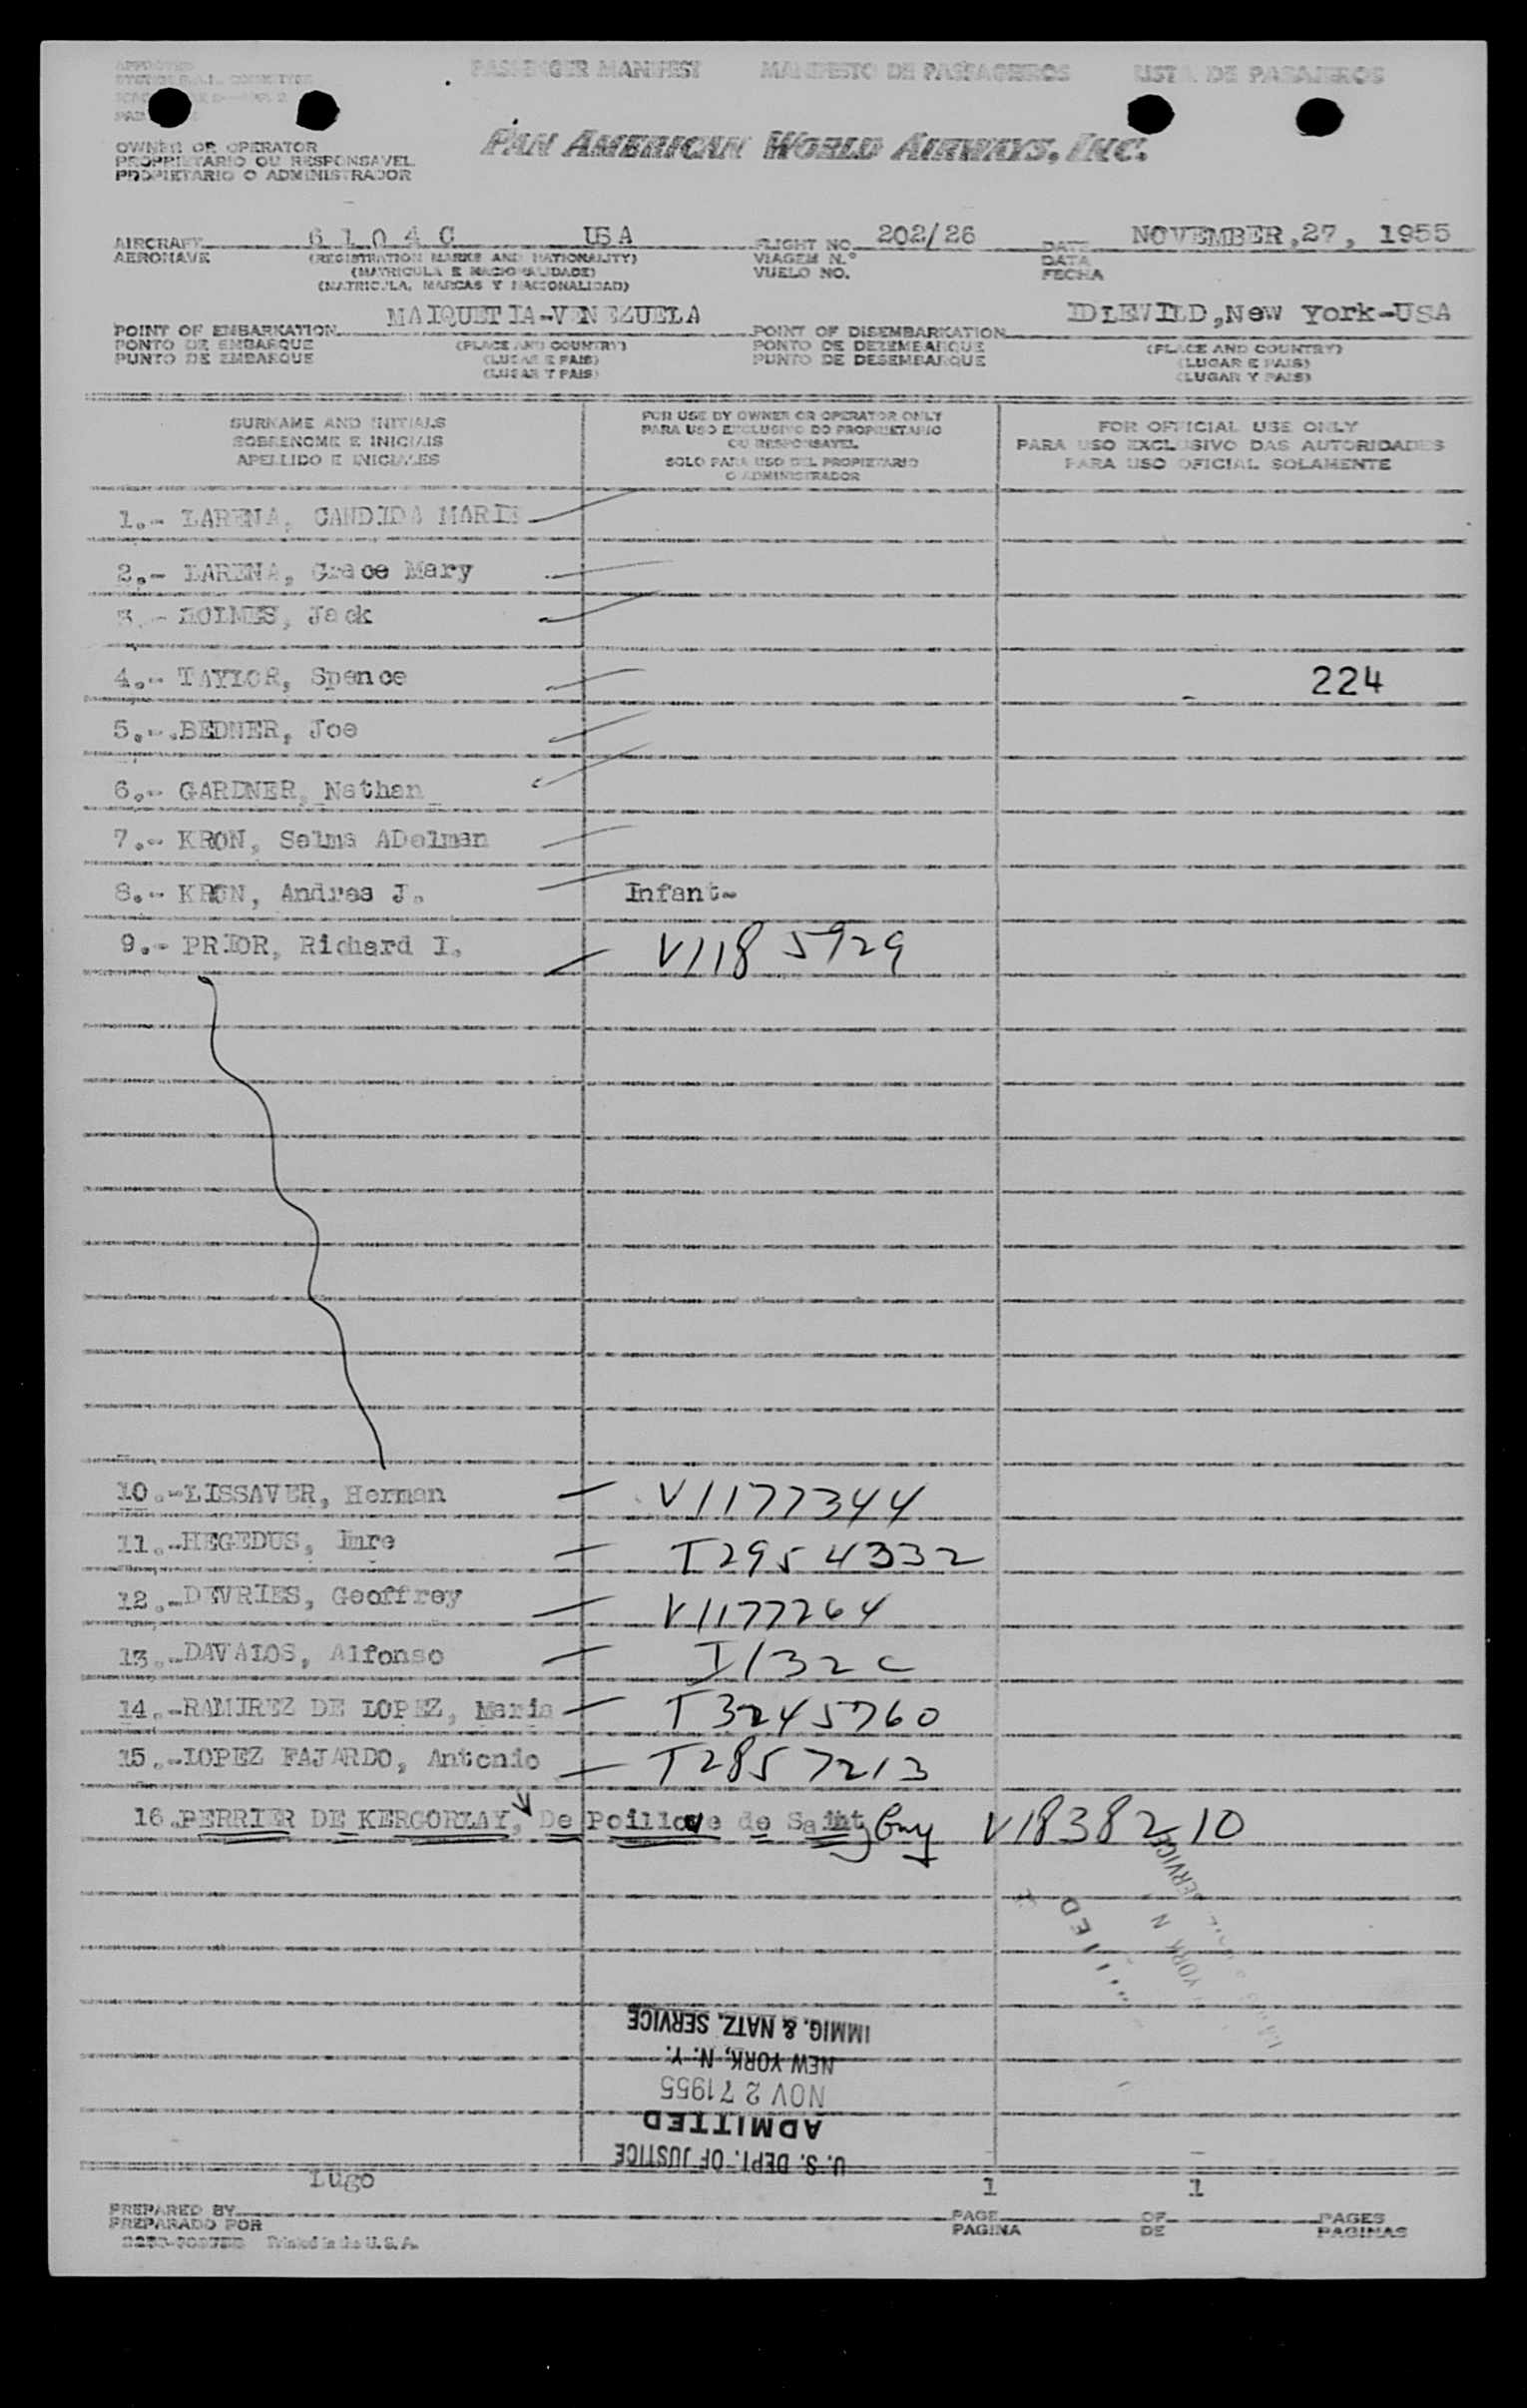 PASSENGER MANIFEST MANIFESTO DE PASSAGEIROS LISTA DE PASAJEROS
PAN AMERICAN WORLD AIRWAYS, INC.
OWNER OR OPERATOR
PROPRIETARIO OU RESPONSAVEL
PROPIETARIO O ADMINISTRADOR
AIRCRAFT 6104C USA FLIGHT NO. 202/26 DATE NOVEMBER,27, 1955
AERONAVE (REGISTRATION MARKS AND NATIONALITY) VIAGEM N.° DATA
(MATRICULA E NACIONALIDADE) VUELO NO. FECHA
(MATRICULA, MARCAS Y NACIONALIDAD)
POINT OF EMBARKATION MAIQUETIA-VENEZUELA POINT OF DISEMBARKATION IDLEWILD,New York-USA
PONTO DE EMBARQUE (PLACE AND COUNTRY) PONTO DE DESEMBARQUE (PLACE AND COUNTRY)
PUNTO DE EMBARQUE (LUGAR E PAIS) PUNTO DE DESEMBARQUE (LUGAR E PAIS)
(LUGAR Y PAIS) (LUGAR Y PAIS)
SURNAME AND INITIALS FOR USE BY OWNER OR OPERATOR ONLY FOR OFFICIAL USE ONLY
SOBRENOME E INICIAIS PARA USO EXCLUSIVO DO PROPRIETARIO PARA USO EXCLUSIVO DAS AUTORIDADES
OU RESPONSAVEL
APELLIDO E INICIALES SOLO PARA USO DEL PROPIETARIO PARA USO OFICIAL SOLAMENTE
O ADMINISTRADOR
1.- LARENA, CANDIDA MARIE
2.- LARENA, Grace Mary
3.- HOLMES, Jack
4.- TAYLOR, Spence 224
5.-.BEDNER, Joe
6.- GARDNER, Nathan
7.- KRON, Selma ADelman
8.- KRON, Andres J. Infant-
9.- PRIOR, Richard I. V1185929
10.-LISSAVER, Herman V1177344
11.-HEGEDUS, Imre T2954332
12.-DEVRIES, Geoffrey V1177264
13.-DAVALOS, Alfonso I132C
14.-RAMIREZ DE LOPEZ, Maria T3245760
15.-LOPEZ FAJARDO, Antonio T2857213
16.PERRIER DE KERGORLAY, De Poillove de Saint Guy V1838210
U. S. DEPT. OF JUSTICE
ADMITTED
NOV 27 1955
NEW YORK, N. Y.
IMMIG. & NATZ. SERVICE
Lugo 1 1
PREPARED BY PAGE OF PAGES
PREPARADO POR PAGINA DE PAGINAS
Printed in the U.S.A.